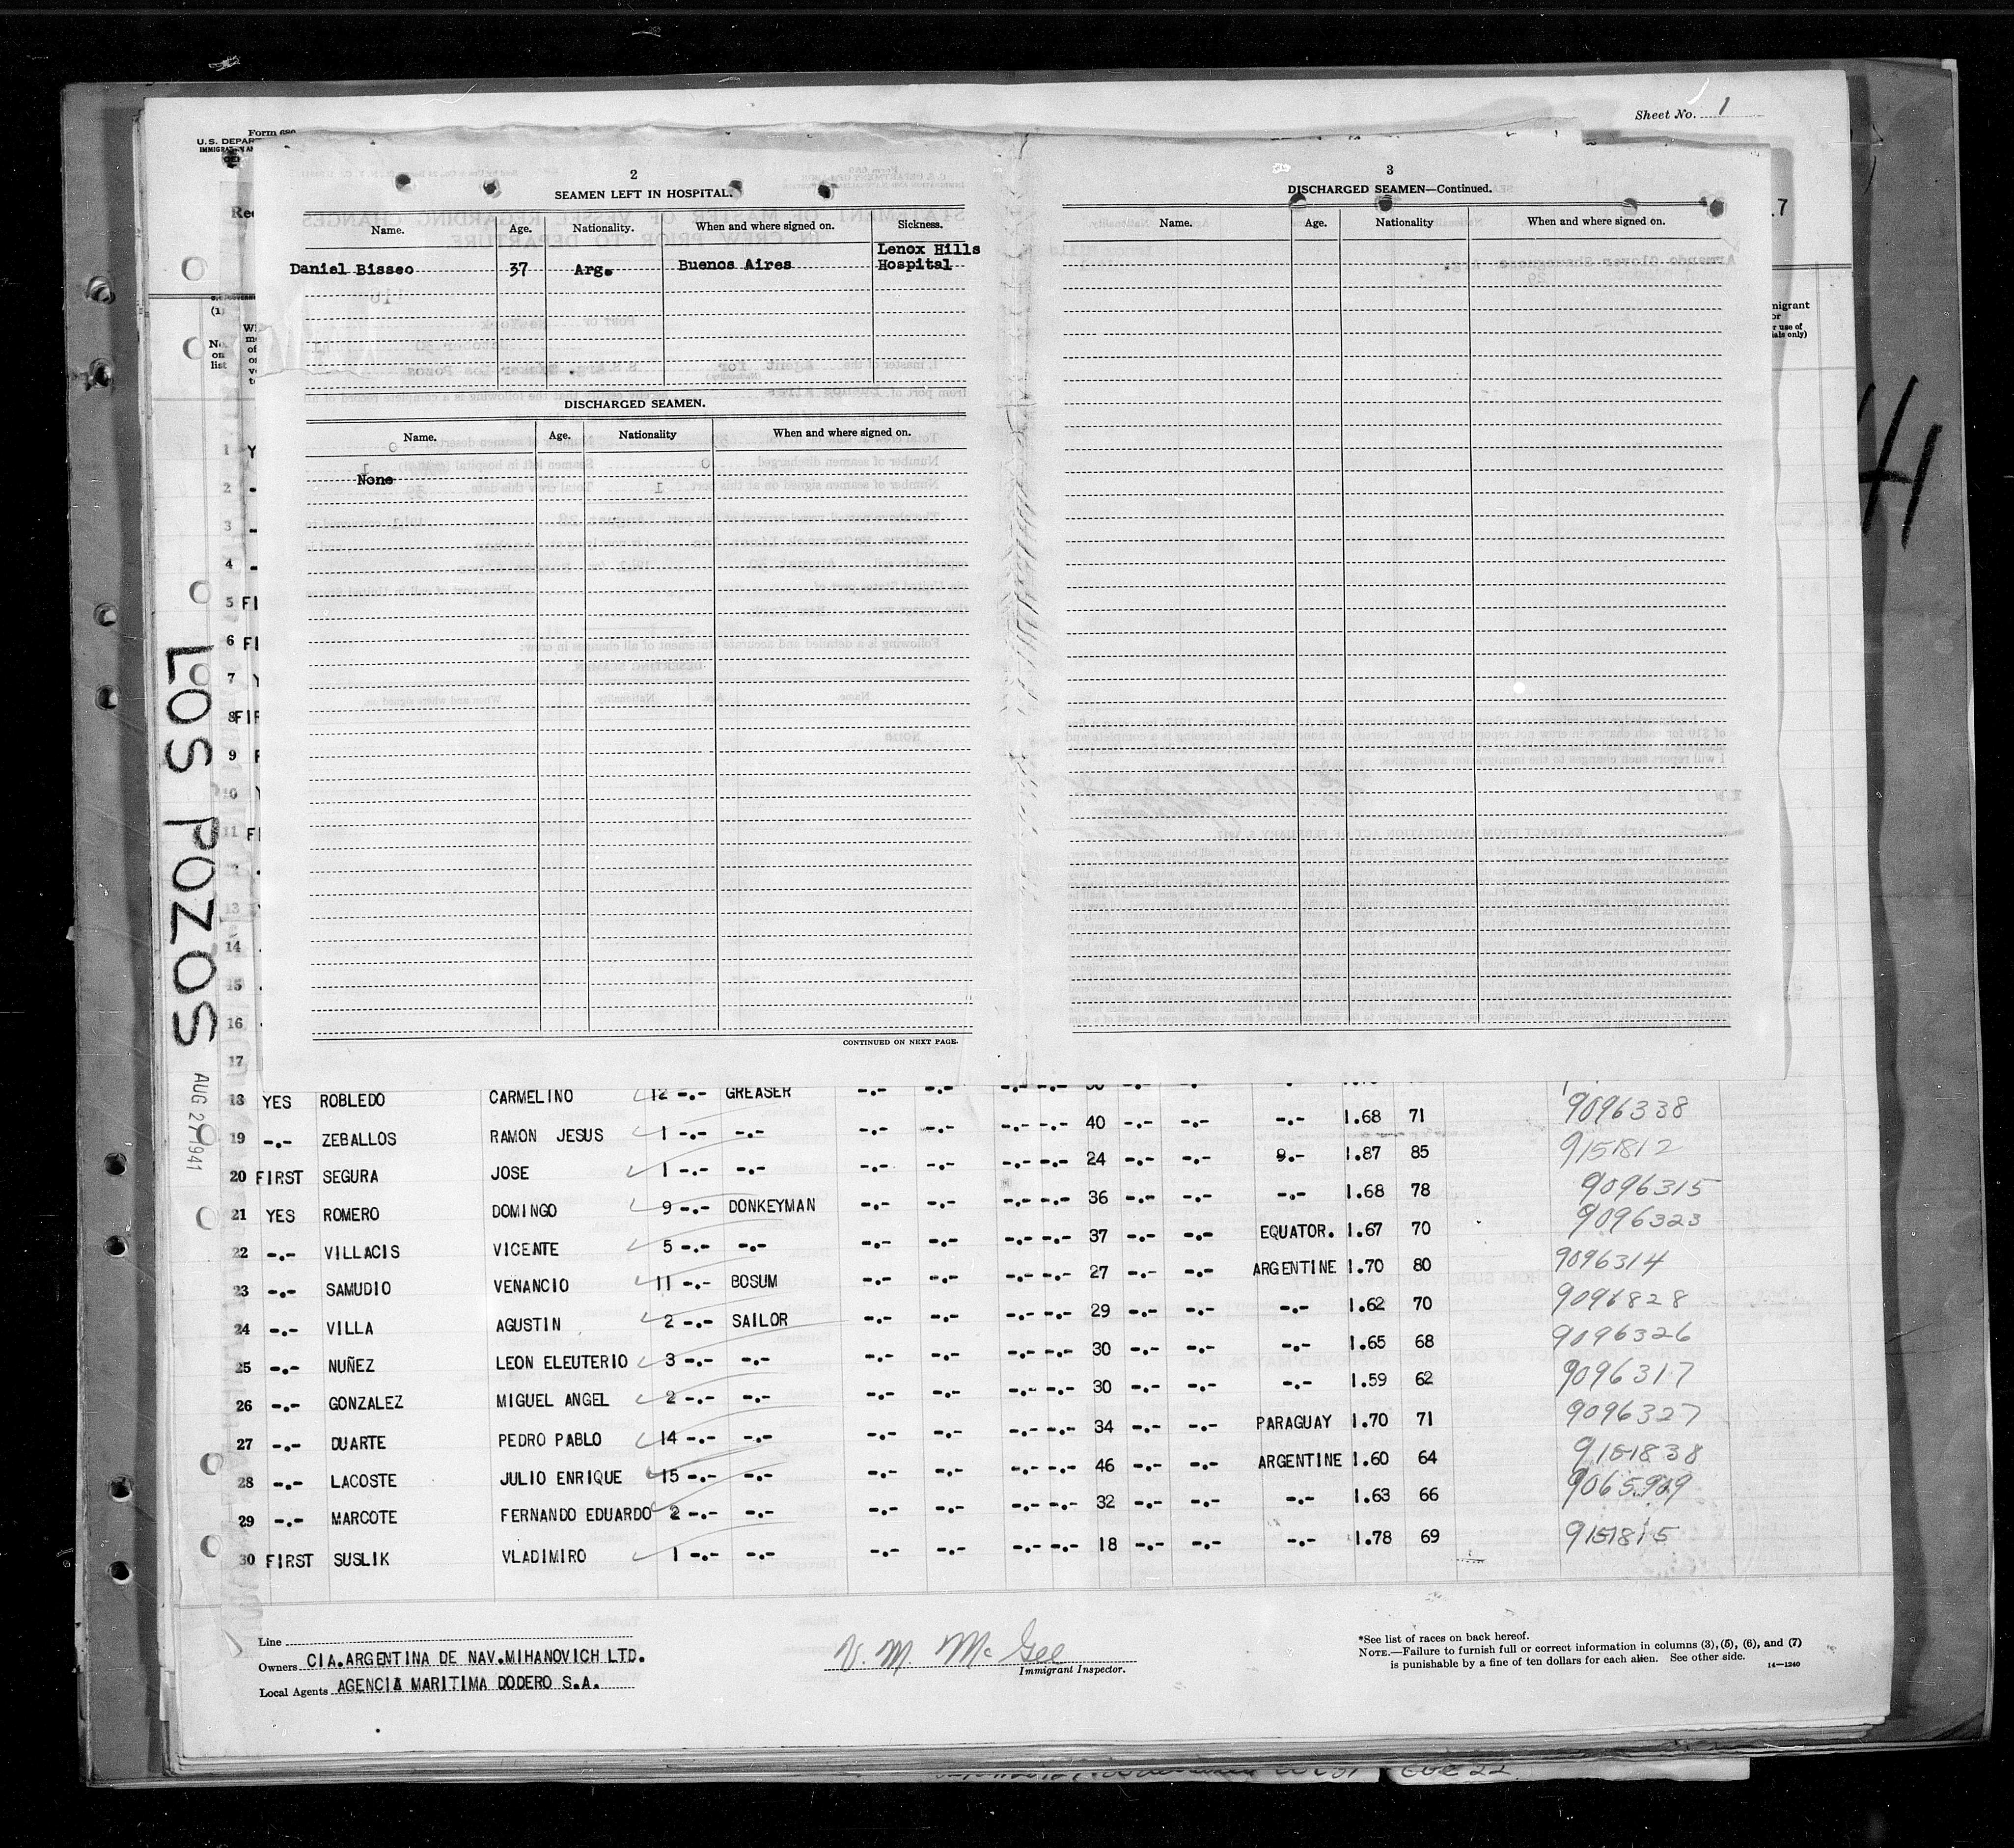 Sheet No. 1
Form 689
U. S. DEPAR
2
SEAMEN LEFT IN HOSPITAL.
Name. Age. Nationality. When and where signed on. Sickness.
Daniel Bisseo 37 Arg. Buenos Aires Lenox Hills
Hospital
DISCHARGED SEAMEN.
Name. Age. Nationality When and where signed on.
None
CONTINUED ON NEXT PAGE.
3
DISCHARGED SEAMEN—Continued.
Name. Age. Nationality When and where signed on.
(1)
No.
on
list
1 Y
2 -
3 -
4 -
5 FI
6 FI
7 Y
8 FIR
9 F
10 Y
11 FI
12
13
14
15
16
17
LOS POZOS
AUG 27 1941
18 YES ROBLEDO CARMELINO 12 -.- GREASER -.- -.- -.- -.- -.- -.- 9096338
19 -.- ZEBALLOS RAMON JESUS 1 -.- -.- -.- -.- -.- -.- 40 -.- -.- -.- 1.68 71 9151812
20 FIRST SEGURA JOSE 1 -.- -.- -.- -.- -.- -.- 24 -.- -.- 1.87 85 9096315
21 YES ROMERO DOMINGO 9 -.- DONKEYMAN -.- -.- -.- -.- 36 -.- -.- -.- 1.68 78 9096323
22 -.- VILLACIS VICENTE 5 -.- -.- -.- -.- -.- -.- 37 -.- -.- EQUATOR. 1.67 70 9096314
23 -.- SAMUDIO VENANCIO 11 -.- BOSUM -.- -.- -.- -.- 27 -.- -.- ARGENTINE 1.70 80 9096828
24 -.- VILLA AGUSTIN 2 -.- SAILOR -.- -.- -.- -.- 29 -.- -.- -.- 1.62 70 9096326
25 -.- NUÑEZ LEON ELEUTERIO 3 -.- -.- -.- -.- -.- -.- 30 -.- -.- -.- 1.65 68 9096317
26 -.- GONZALEZ MIGUEL ANGEL 2 -.- -.- -.- -.- -.- -.- 30 -.- -.- -.- 1.59 62 9096327
27 -.- DUARTE PEDRO PABLO 14 -.- -.- -.- -.- -.- -.- 34 -.- -.- PARAGUAY 1.70 71 9151838
28 -.- LACOSTE JULIO ENRIQUE 15 -.- -.- -.- -.- -.- -.- 46 -.- -.- ARGENTINE 1.60 64 9065909
29 -.- MARCOTE FERNANDO EDUARDO 2 -.- -.- -.- -.- -.- -.- 32 -.- -.- -.- 1.63 66
30 FIRST SUSLIK VLADIMIRO 1 -.- -.- -.- -.- -.- -.- 18 -.- -.- -.- 1.78 69 9151815
Line
Owners CIA.ARGENTINA DE NAV.MIHANOVICH LTD.
Local Agents AGENCIA MARITIMA DODERO S.A.
V. M. McGee
Immigrant Inspector.
*See list of races on back hereof.
NOTE.—Failure to furnish full or correct information in columns (3), (5), (6), and (7)
is punishable by a fine of ten dollars for each alien. See other side. 14—1240